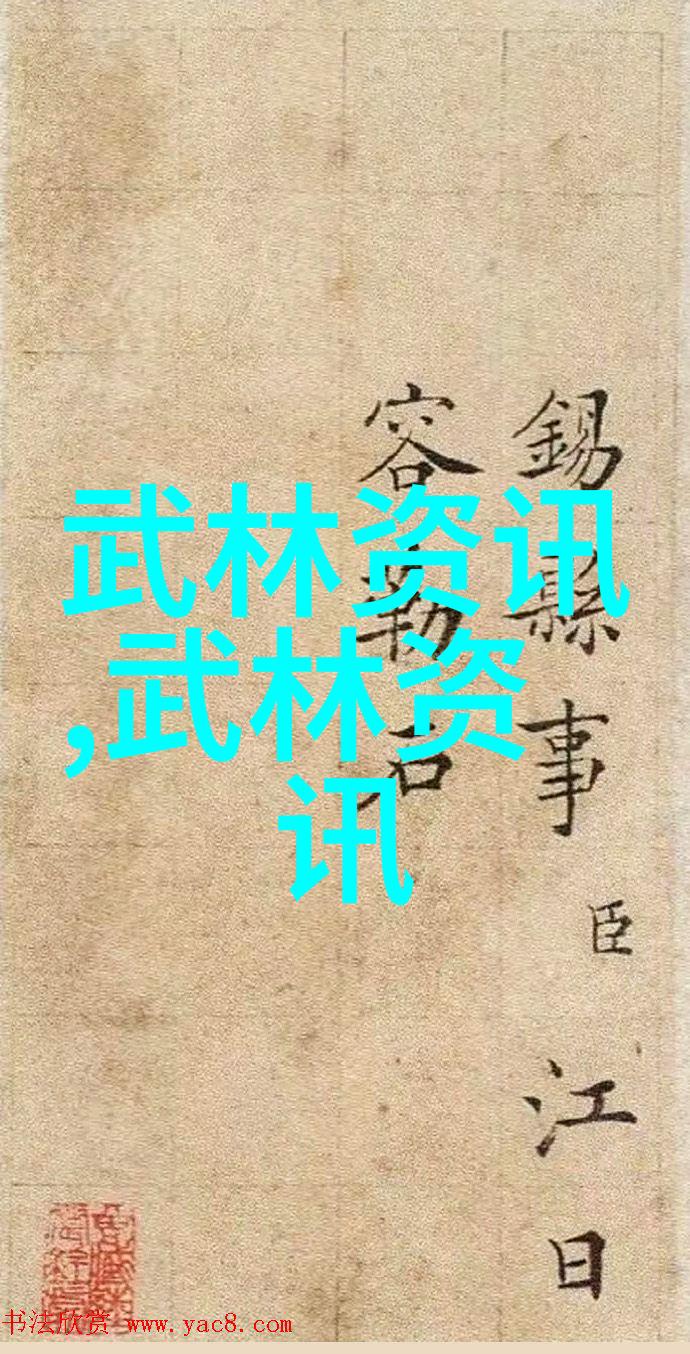 武林资讯
,武林资
讯
錫縣事臣江日
容勒石
书法欣赏 www.yac8.com